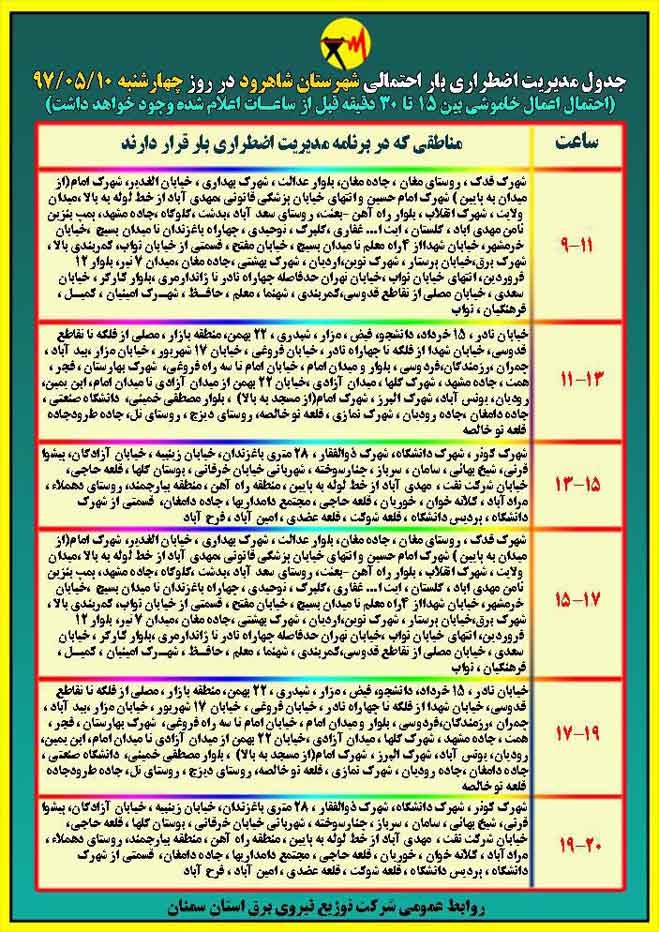 جدول مدیریت اضطراری بار احتمالی شهرستان شاهرود در روز چهارشنبه ۹۷/۰۵/۱۰
(احتمال اعمال خاموشی بین ۱۵ تا ۳۰ دقیقه قبل از ساعات اعلام شده وجود خواهد داشت)
ساعت
مناطقی که در برنامه مدیریت اضطراری بار قرار دارند
۹-۱۱
شهرک فدک ، روستای مغان ، جاده مغان، بلوار عدالت ، شهرک بهداری ، خیابان الغدیر، شهرک امام(از
میدان به پایین ) شهرک امام حسین و انتهای خیابان پزشکی قانونی ،مهدی آباد از خط لوله به بالا ،میدان
ولایت ، شهرک انقلاب ، بلوار راه آهن -بعثت، روستای سعد آباد ،بدشت ،کلوگاه ،جاده مشهد، پمپ بنزین
ثامن مهدی آباد ، گلستان ، آیت ا... غفاری ،گلبرگ ، توحیدی ، چهاراه باغزندان تا میدان بسیج ،خیابان
خرمشهر، خیابان شهدا،از ۴راه معلم تا میدان بسیج ، خیابان مفتح ، قسمتی از خیابان نواب، کمربندی بالا ،
شهرک برق،خیابان پرستار ، شهرک نوین،اردیان ، شهرک بهشتی ،جاده مغان ،میدان ۷ تیر، بلوار ۱۲
فروردین، انتهای خیابان نواب ،خیابان تهران حدفاصله چهاراه نادر تا ژاندارمری ،بلوار کارگر ، خیابان
سعدی ، خیابان مصلی از تقاطع قدوسی،کمربندی ، شهنما ، معلم ، حافظ ، شهرک امینیان ، کمیل ،
فرهنگیان ، نواب
۱۱-۱۳
خیابان نادر ، ۱۵ خرداد، دانشجو، فیض ، مزار ، شیدری ، ۲۲ بهمن، منطقه بازار ، مصلی از فلکه تا تقاطع
قدوسی، خیابان شهدا از فلکه تا چهاراه نادر ، خیابان فروغی ، خیابان ۱۷ شهریور ، خیابان مزار ،بید آباد ،
چمران ،رزمندگان،فردوسی ، بلوار و میدان امام ، خیابان امام تا سه راه فروغی، شهرک بهارستان ، فجر ،
همت ، جاده مشهد ، شهرک گلها ، میدان آزادی ،خیابان ۲۲ بهمن از میدان آزادی تا میدان امام، ابن یمین،
رودیان، یونس آباد، شهرک البرز ، شهرک امام(از مسجد به بالا) ، بلوار مصطفی خمینی، دانشگاه صنعتی ،
جاده دامغان ،جاده رودیان ، شهرک نمازی ، قلعه نو خالصه، روستای دیزج ، روستای تل، جاده طرودجاده
قلعه نو خالصه
۱۳-۱۵
شهرک کوثر ، شهرک دانشگاه، شهرک ذوالفقار ، ۲۸ متری باغزندان، خیابان زینبیه ، خیابان آزادگان، پیشوا
قرنی، شیخ بهائی ، سامان ، سرباز ، چنارسوخته ، شهربانی خیابان خرقانی ، بوستان گلها ، قلعه حاجی،
خیابان شرکت نفت ، مهدی آباد از خط لوله به پایین ، منطقه راه آهن ، منطقه بیارجمند، روستای دهملاء،
مرادآباد ، کلاته خوان ، خوریان ، قلعه حاجی ، مجتمع دامداریها ، جاده دامغان، قسمتی از شهرک
دانشگاه ، پردیس دانشگاه ، قلعه شوکت ، قلعه عضدی ، امین آباد ، فرح آباد
۱۵-۱۷
شهرک فدک ، روستای مغان ، جاده مغان، بلوار عدالت ، شهرک بهداری ، خیابان الغدیر، شهرک امام(از
میدان به پایین ) شهرک امام حسین و انتهای خیابان پزشکی قانونی ،مهدی آباد از خط لوله به بالا ،میدان
ولایت ، شهرک انقلاب ، بلوار راه آهن -بعثت، روستای سعد آباد ،بدشت ،کلوگاه ،جاده مشهد، پمپ بنزین
ثامن مهدی آباد ، گلستان ، آیت ا... غفاری ،گلبرگ ، توحیدی ، چهاراه باغزندان تا میدان بسیج ،خیابان
خرمشهر، خیابان شهدا،از ۴راه معلم تا میدان بسیج ، خیابان مفتح ، قسمتی از خیابان نواب، کمربندی بالا ،
شهرک برق،خیابان پرستار ، شهرک نوین،اردیان ، شهرک بهشتی ،جاده مغان ،میدان ۷ تیر، بلوار ۱۲
فروردین، انتهای خیابان نواب ،خیابان تهران حدفاصله چهاراه نادر تا ژاندارمری ،بلوار کارگر ، خیابان
سعدی ، خیابان مصلی از تقاطع قدوسی،کمربندی ، شهنما ، معلم ، حافظ ، شهرک امینیان ، کمیل ،
فرهنگیان ، نواب
۱۷-۱۹
خیابان نادر ، ۱۵ خرداد، دانشجو، فیض ، مزار ، شیدری ، ۲۲ بهمن، منطقه بازار ، مصلی از فلکه تا تقاطع
قدوسی، خیابان شهدا از فلکه تا چهاراه نادر ، خیابان فروغی ، خیابان ۱۷ شهریور ، خیابان مزار ،بید آباد ،
چمران ،رزمندگان،فردوسی ، بلوار و میدان امام ، خیابان امام تا سه راه فروغی، شهرک بهارستان ، فجر ،
همت ، جاده مشهد ، شهرک گلها ، میدان آزادی ،خیابان ۲۲ بهمن از میدان آزادی تا میدان امام، ابن یمین،
رودیان، یونس آباد، شهرک البرز ، شهرک امام(از مسجد به بالا) ، بلوار مصطفی خمینی، دانشگاه صنعتی ،
جاده دامغان ،جاده رودیان ، شهرک نمازی ، قلعه نو خالصه، روستای دیزج ، روستای تل، جاده طرودجاده
قلعه نو خالصه
۱۹-۲۰
شهرک کوثر ، شهرک دانشگاه، شهرک ذوالفقار ، ۲۸ متری باغزندان، خیابان زینبیه ، خیابان آزادگان، پیشوا
قرنی، شیخ بهائی ، سامان ، سرباز ، چنارسوخته ، شهربانی خیابان خرقانی ، بوستان گلها ، قلعه حاجی،
خیابان شرکت نفت ، مهدی آباد از خط لوله به پایین ، منطقه راه آهن ، منطقه بیارجمند، روستای دهملاء،
مرادآباد ، کلاته خوان ، خوریان ، قلعه حاجی ، مجتمع دامداریها ، جاده دامغان، قسمتی از شهرک
دانشگاه ، پردیس دانشگاه ، قلعه شوکت ، قلعه عضدی ، امین آباد ، فرح آباد
روابط عمومی شرکت توزیع نیروی برق استان سمنان